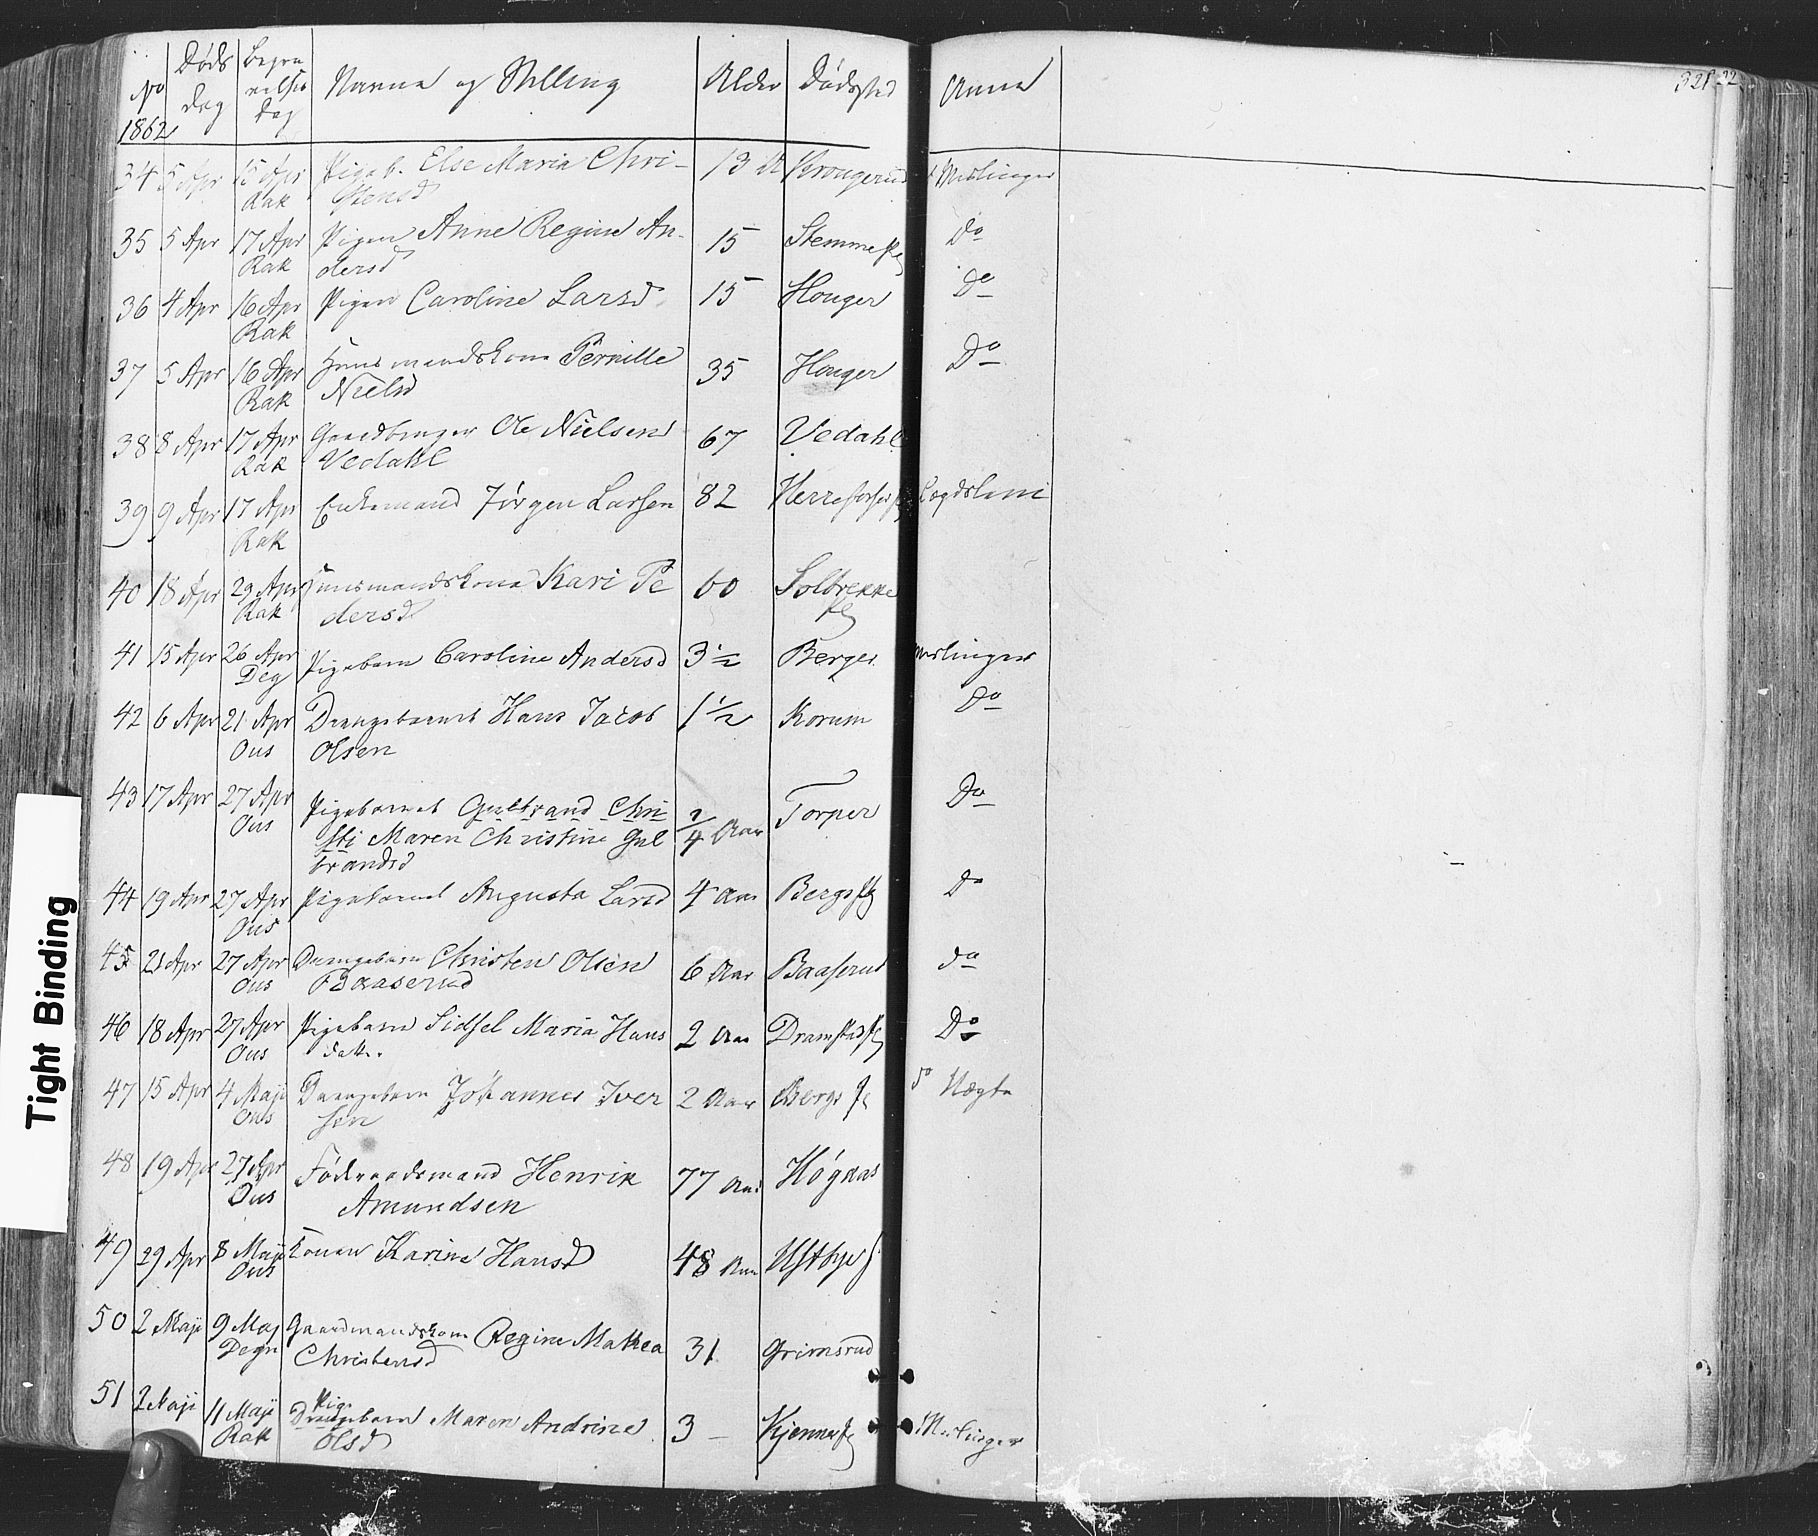 No
1862
Døds
dag
Begra
velses
Dag
Navne og Stilling
Alder
Dødssted
Anm
321
22
34 5 Apr 15 Apr Pigeb. Else Maria Chri- 13 Krongerud Meslinger
Rak stensd
35 5 Apr 17 Apr Pigen Anne Regine An- 15 Stemme Do
Rak dersd
36 4 Apr 16 Apr Pigen Caroline Larsd 15 Houger Do
Rak
37 5 Apr 16 Apr Huusmandskone Pernille 35 Houger Do
Rak Nielsd
38 8 Apr 17 Apr Gaardbruger Ole Nielsen 67 Vedahl
Rak Vedahl
39 9 Apr 17 Apr Enkemand Jørgen Larsen 82 Lægdslem
Rak
40 18 Apr 29 Apr Huusmandskone Kari Pe 60 Solbrekke
Rak dersd
41 15 Apr 26 Apr Pigebarn Caroline Andersd 3 1/2 Berger Meslinger
Deg
42 6 Apr 21 Apr Drengebarnet Hans Jacob 1 1/2 Korum Do
Ous Olsen
43 17 Apr 27 Apr Pigebarnet Gulbrand Chri Torper Do
Ous sti Maren Christine Gul 4 Aar
brandsd
44 19 Apr 27 Apr Pigebarnet Augusta Larsd 4 Aar Bergs Do
Ous
45 21 Apr 27 Apr Drengebarn Christen Olsen 6 Aar Baaserud do
Ous Baaserud
46 18 Apr 27 Apr Pigebarn Sidsel Maria Hans 2 Aar Dramstad Do
Ous datt.
47 15 Apr 4 Maji Drengebarn Johannes Iver 2 Aar Bergs do Nægte
Ous sen
48 19 Apr 27 Apr Føderaadsmand Henrik 77 Aar Høgaas
Ous Amundsen
49 29 Apr 8 Maji Konen Karine Hansd 48 Aar Ustbye
Ous
50 2 Maji 9 Maj Gaardmandskone Regine Mathea 31 Grimsrud
Degn Christensd
51 2 Maji 11 Maji Pige Drengebarn Maren Andrine 3 – Kjenner Meslinger
Rak Olsd
Tight Binding